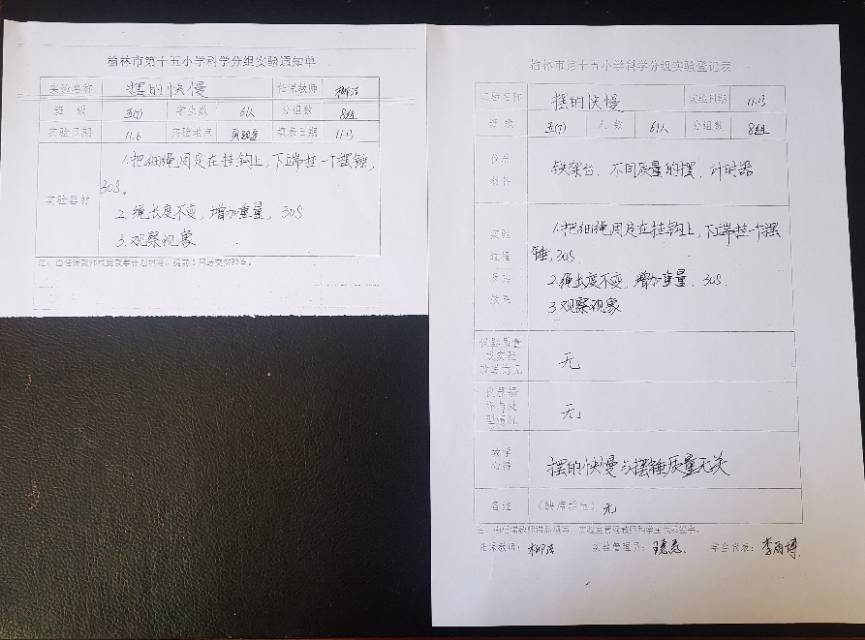 榆林市第十五小学科学分组实验通知单
实验名称 摆的快慢 任课教师
班 级 五(7) 学生数 61人 分组数 8组
实验日期 11.6 实验地点 实验室 填表日期 11.13
实验器材
1.把细绳固定在挂钩上,下端挂一个摆锤,
30S。
2.绳长度不变,增加重量,30S
3.观察现象
榆林市第十五小学科学分组实验登记表
实验名称 摆的快慢 实验日期 11.13
班 级 五(7) 人 数 61人 分组数 8组
仪器
材料
铁架台、不同质量的摆、计时器
实验
过程
1.把细绳固定在挂钩上,下端挂一个摆
锤,30S
2.绳长度不变,增加重量,30S.
3.观察现象
效果
仪器质量
无
无
教学
心得
摆的快慢与摆锤质量无关
备注 (缺席学生) 无
任课教师: 实验管理员: 学生代表: 李雨博